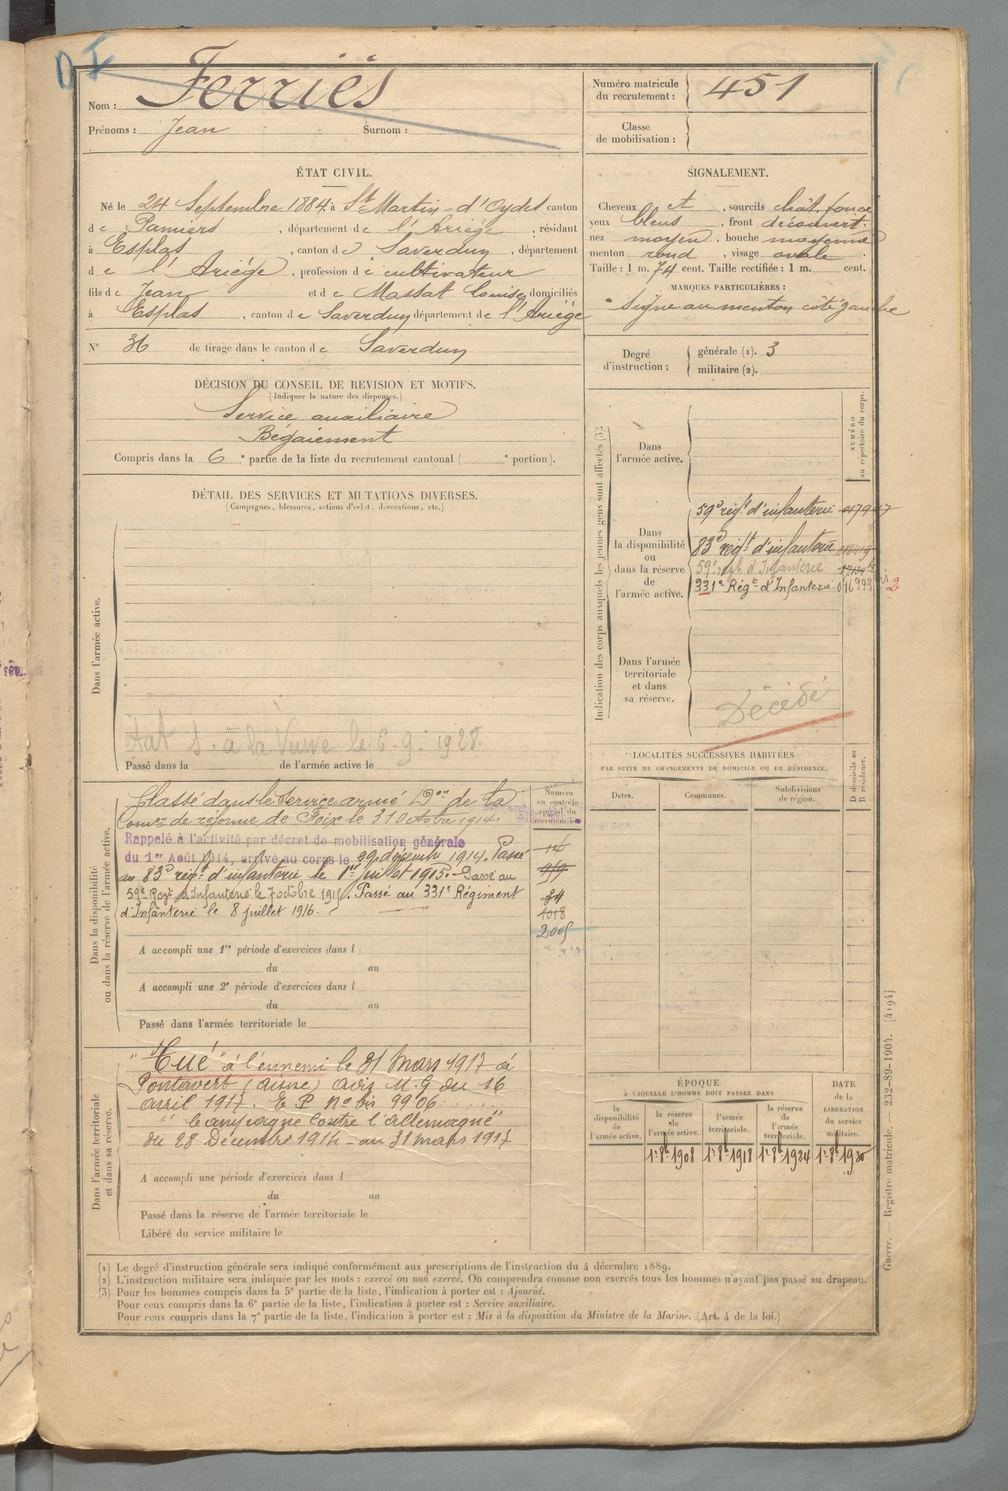 Nom : Ferriés
Prénoms : Jean Surnom :
Numéro matricule du recrutement : 451
Classe de mobilisation :
ÉTAT CIVIL.
Né le 24 Septembre 1884 à St Martin-d'Oydes canton
de Pamiers, département de l'Ariège, résidant
à Esplas, canton de Saverdun, département
de l'Ariège, profession de cultivateur
fils de Jean et de Massat Louise domiciliés
à Esplas, canton de Saverdun département de l'Ariège
N° 36 de tirage dans le canton de Saverdun
SIGNALEMENT.
Cheveux et, sourcils chât. foncé
yeux bleus, front découvert
nez moyen, bouche moyenne
menton rond, visage ovale.
Taille : 1 m. 74 cent. Taille rectifiée : 1 m. cent.
MARQUES PARTICULIÈRES :
Signe au menton côté gauche
Degré d'instruction : générale (1). 3
militaire (2).
DÉCISION DU CONSEIL DE REVISION ET MOTIFS.
(Indiquer la nature des dispenses.)
Service auxiliaire
Bégaiement
Compris dans la 6e partie de la liste du recrutement cantonal ( e portion).
DÉTAIL DES SERVICES ET MUTATIONS DIVERSES.
(Campagnes, blessures, actions d'éclat, décorations, etc.)
Dans l'armée active.
Etat S. à la Veuve le 6.9.1928.
Passé dans la de l'armée active le
Indication des corps auxquels les jeunes gens sont affectés (3).
NUMÉRO au répertoire du corps.
Dans l'armée active.
Dans la disponibilité ou dans la réserve de l'armée active.
59e régt d'infanterie
83e régt d'infanterie
59e régt d'Infanterie
331e Régt d'Infanterie 016993
Dans l'armée territoriale et dans sa réserve.
Décédé
LOCALITÉS SUCCESSIVES HABITÉES
PAR SUITE DE CHANGEMENTS DE DOMICILE OU DE RÉSIDENCE.
Dates. Communes. Subdivisions de région.
D domicile ou R résidence.
Dans la disponibilité ou dans la réserve de l'armée active.
Numéro au contrôle spécial du recrutement.
Classé dans le Service armé Don de la
Comon de réforme de Foix le 31 Octobre 1914.
Rappelé à l'activité par décret de mobilisation générale
du 1er Août 1914, arrivé au corps le 29 décembre 1914. Passé
au 83e régt d'infanterie le 1er juillet 1915. Passé au
59e Regt d'Infanterie le 7 octobre 1915. Passé au 331e Régiment
d'Infanterie le 8 juillet 1916.
14
34
1018
2005
A accompli une 1re période d'exercices dans l
du au
A accompli une 2e période d'exercices dans l
du au
Passé dans l'armée territoriale le
Dans l'armée territoriale et dans sa réserve.
"Tué" à l'ennemi le 31 Mars 1917 à
Pontavert (Aisne) avis M.G du 16
avril 1917. E P no bis 9906
"Campagne contre l'Allemagne"
du 28 Décembre 1914 au 31 mars 1917
A accompli une période d'exercices dans l
du au
Passé dans la réserve de l'armée territoriale le
Libéré du service militaire le
ÉPOQUE
A LAQUELLE L'HOMME DOIT PASSER DANS
la disponibilité de l'armée active.
la réserve de l'armée active.
l'armée territoriale.
la réserve de l'armée territoriale.
DATE de la LIBÉRATION du service militaire.
1er 8bre 1908 1er 8bre 1918 1er 8bre 1924 1er 8bre 1930
(1) Le degré d'instruction générale sera indiqué conformément aux prescriptions de l'instruction du 4 décembre 1889.
(2) L'instruction militaire sera indiquée par les mots : exercé ou non exercé. On comprendra comme non exercés tous les hommes n'ayant pas passé au drapeau.
(3) Pour les hommes compris dans la 5e partie de la liste, l'indication à porter est : Ajourné.
Pour ceux compris dans la 6e partie de la liste, l'indication à porter est : Service auxiliaire.
Pour ceux compris dans la 7e partie de la liste, l'indication à porter est : Mis à la disposition du Ministre de la Marine. (Art. 4 de la loi.)
Guerre. Registre matricule. 232-89-1904. [4194]